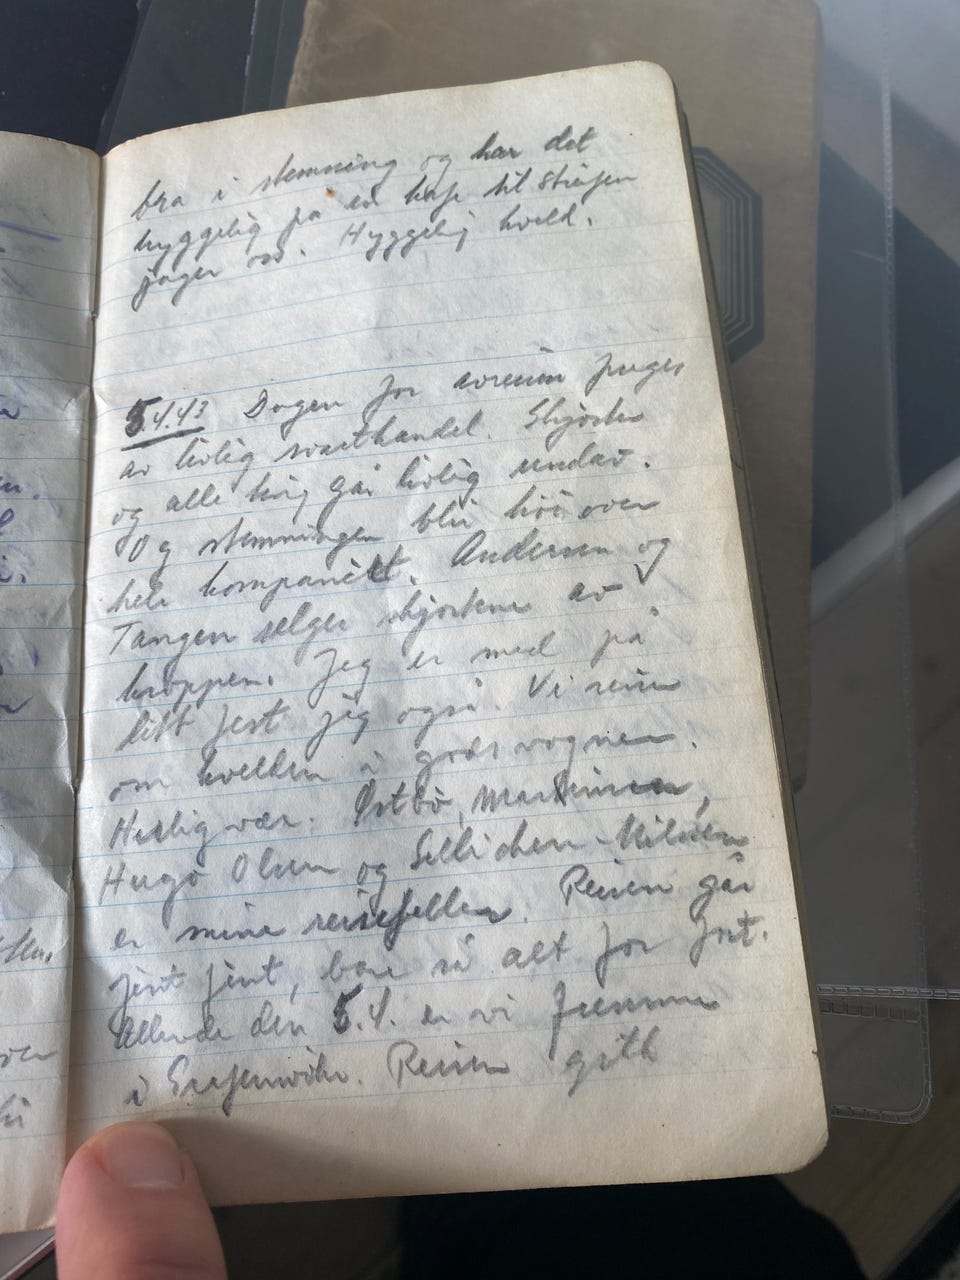 bra i stemning og har det
hyggelig på en kafe til Streifen
jager oss. Hyggelig kveld.
5.4.43 Dagen før avreisen preges
av livlig svarthandel. Skjorter
og alle ting går livlig undav.
Og stemningen blir høi over
hele kompaniet. Andersen og
Tangen selger skjortene av
kroppen. Jeg er med på
litt fest jeg også. Vi reiser
om kvelden i godsvogner.
Herlig vær. Østbø, Martinsen,
Hugo Olsen og Nilsen
er mine reisefeller. Reisen går
fint fint, bare så alt for fort.
Allerede den 5.4. er vi fremme
i Grafenwöhr. Reisen gikk